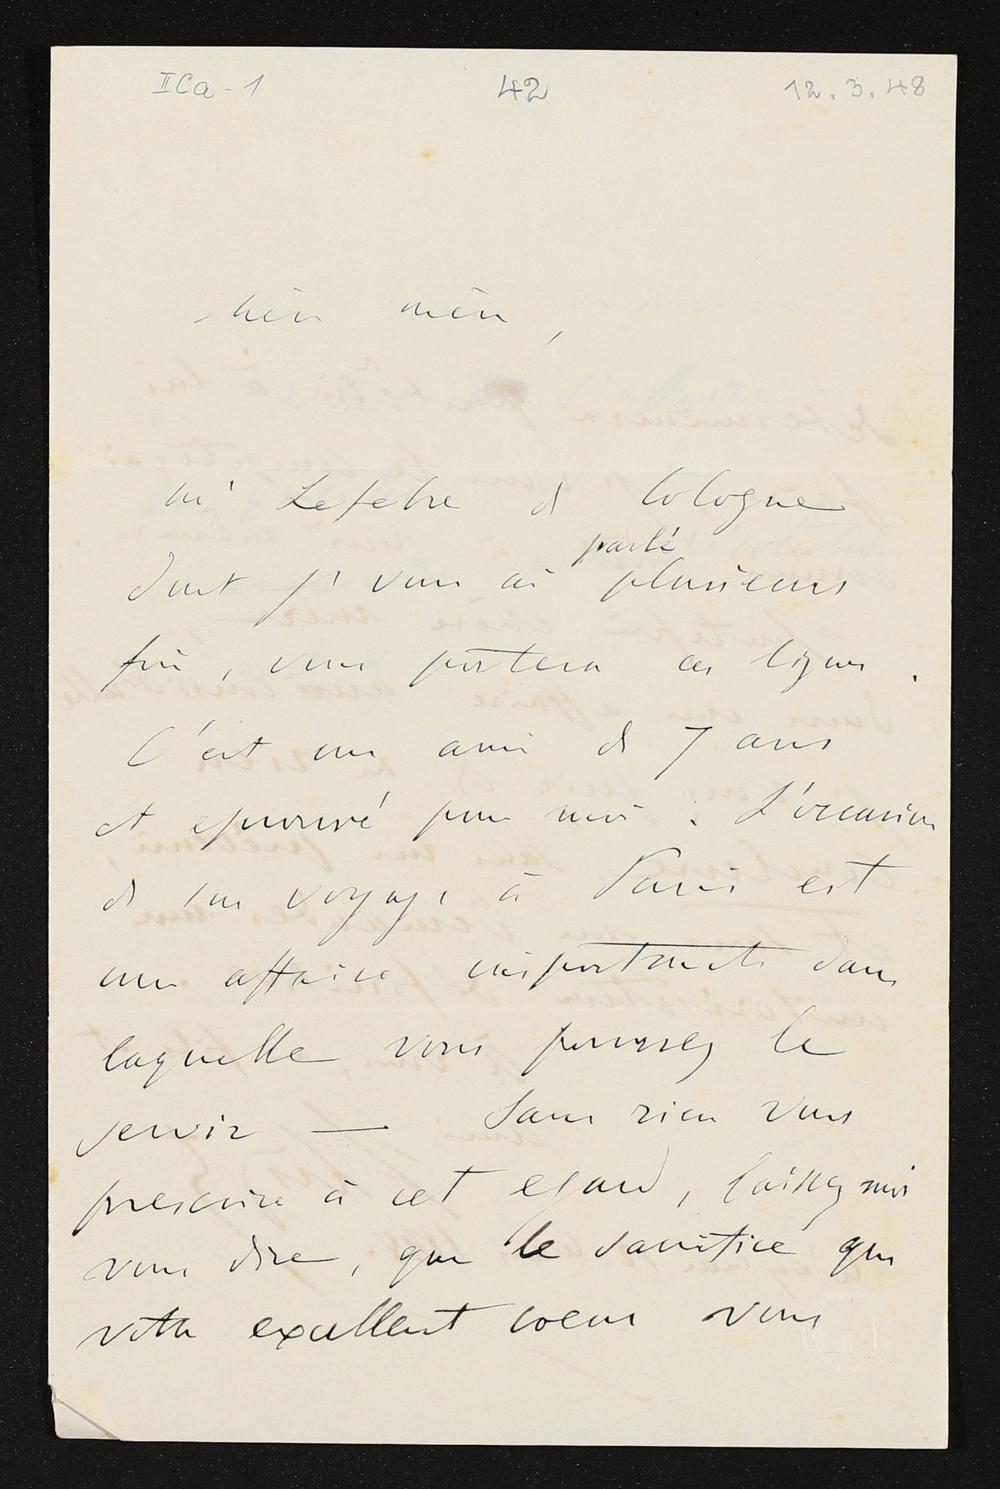 IICa-1 42 12.3.48
chère mère,
Mr Lefebre de Cologne
dont je vous ai parlé plusieurs
fois, vous portera ces lignes.
C'est un ami de 7 ans
et eprouvé pour moi. L'occasion
de son voyage à Paris est
une affaire importante dans
laquelle vous pouvez le
servir — Sans rien vous
prescrire à cet egard, laissez moi
vous dire, que le sacrifice que
votre excellent coeur vous